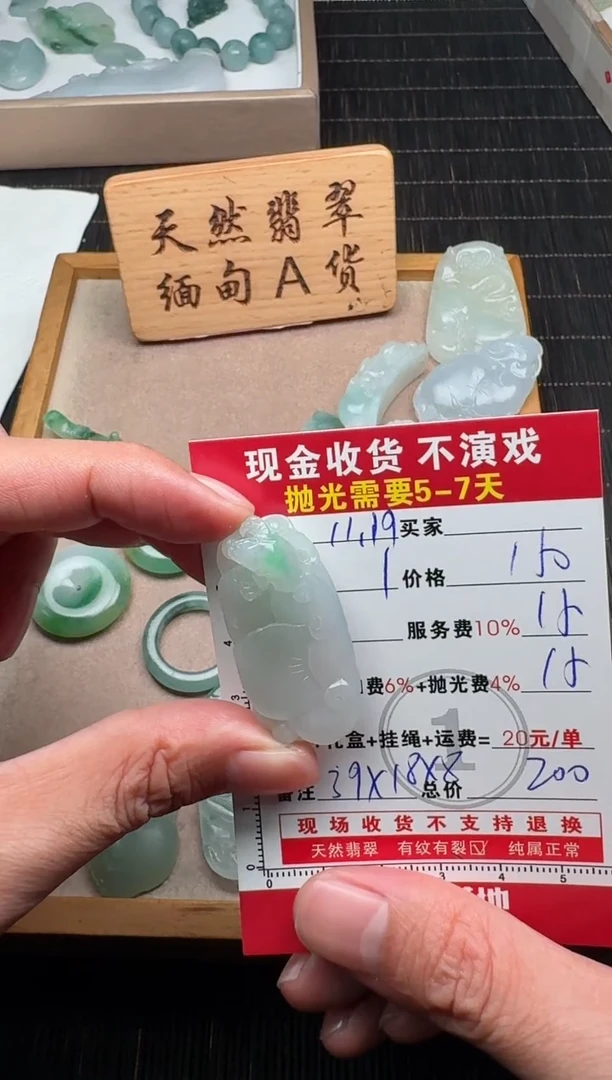 天然翡翠
缅甸A货
现金收货 不演戏
抛光需要5-7天
11.19 买家
1 价格 150
服务费10% 15
费6%+抛光费4% 15
礼盒+挂绳+运费= 20元/单
备注 39X18X8 总价 200
现场收货不支持退换
天然翡翠 有纹有裂☑ 纯属正常